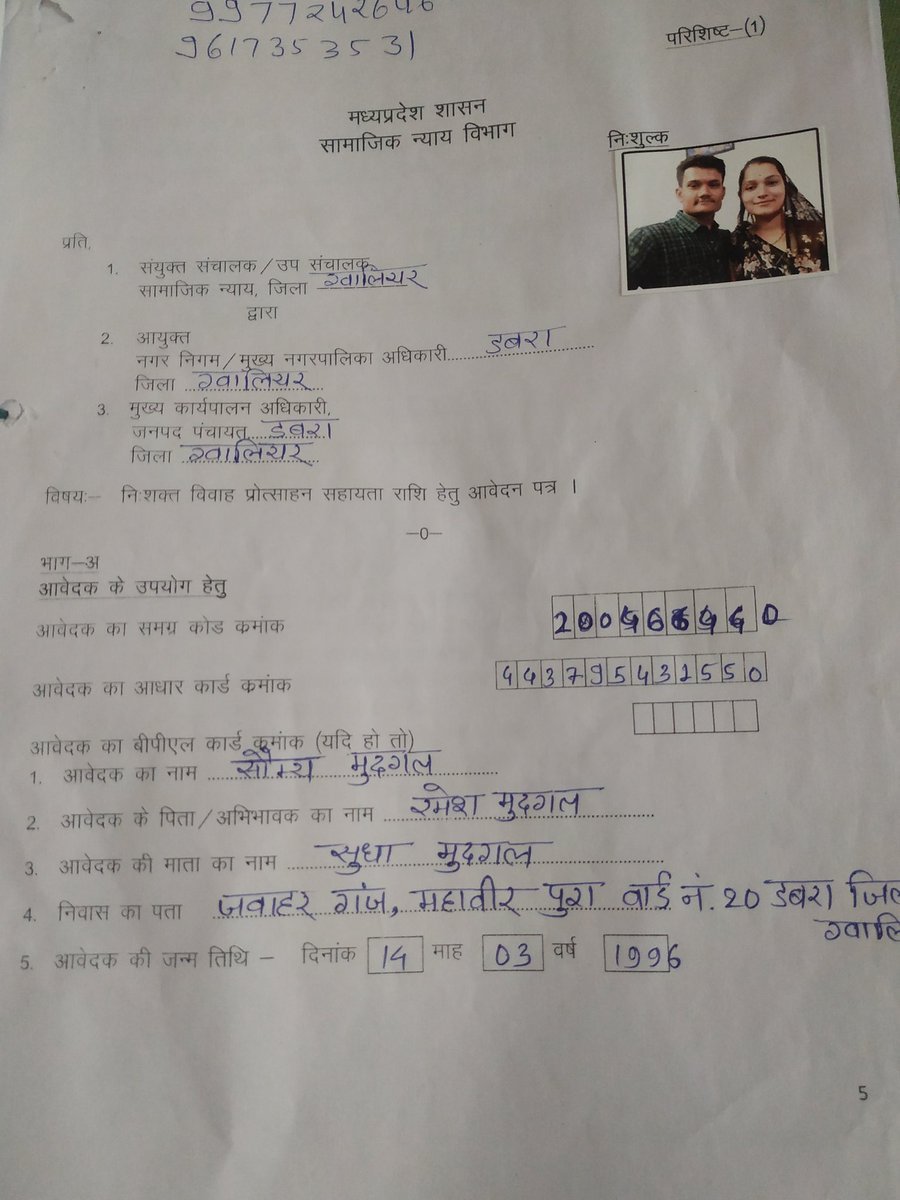 9617353531
परिशिष्ट–(1)
मध्यप्रदेश शासन
सामाजिक न्याय विभाग
निःशुल्क
प्रति,
1. संयुक्त संचालक/उप संचालक
सामाजिक न्याय, जिला ग्वालियर
द्वारा
2. आयुक्त
नगर निगम/मुख्य नगरपालिका अधिकारी डबरा
जिला ग्वालियर
3. मुख्य कार्यपालन अधिकारी,
जनपद पंचायत डबरा
जिला ग्वालियर
विषयः– निःशक्त विवाह प्रोत्साहन सहायता राशि हेतु आवेदन पत्र ।
–0–
भाग–अ
आवेदक के उपयोग हेतु
आवेदक का समग्र कोड कमांक
आवेदक का आधार कार्ड कमांक 443795432550
आवेदक का बीपीएल कार्ड कमांक (यदि हो तो)
1. आवेदक का नाम सौम्य मुदगल
2. आवेदक के पिता/अभिभावक का नाम रमेश मुदगल
3. आवेदक की माता का नाम सुधा मुदगल
4. निवास का पता जवाहर गंज, महावीर पुरा वार्ड नं. 20 डबरा
5. आवेदक की जन्म तिथि – दिनांक 14 माह 03 वर्ष 1996
5